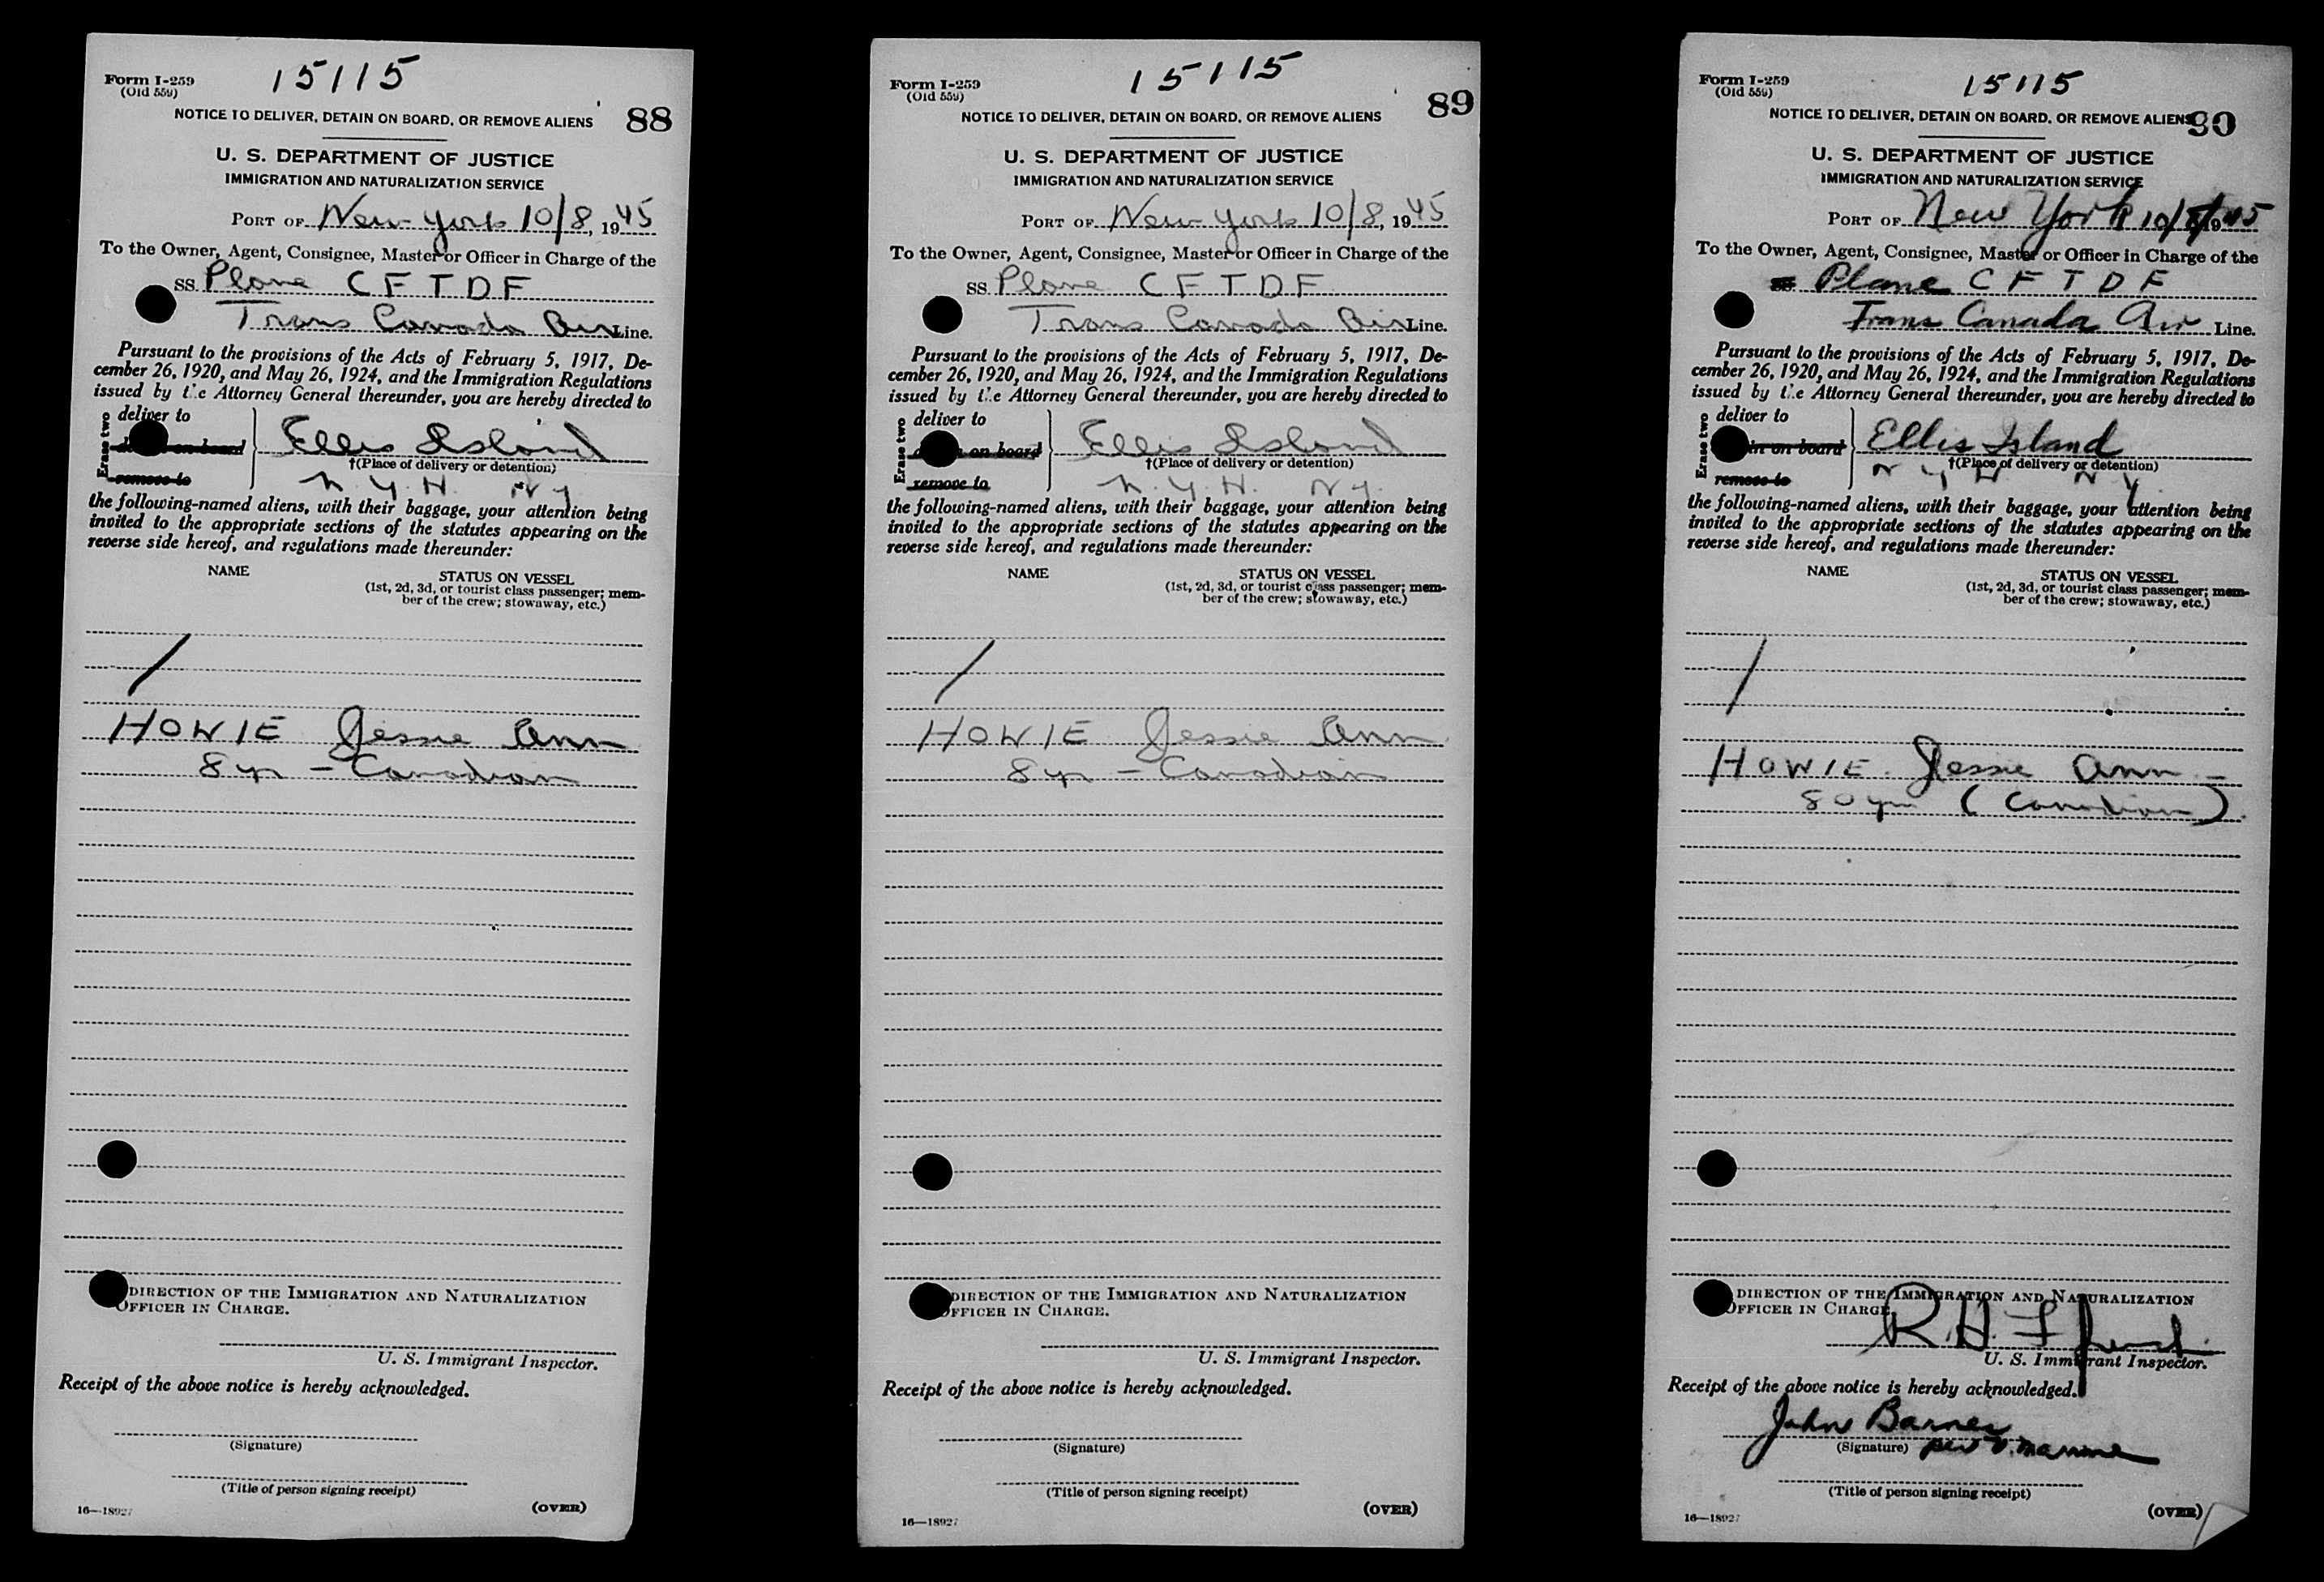 15115
Form I-259
(Old 559)
88
NOTICE TO DELIVER, DETAIN ON BOARD, OR REMOVE ALIENS
U. S. DEPARTMENT OF JUSTICE
IMMIGRATION AND NATURALIZATION SERVICE
PORT OF New York 10/8, 1945
To the Owner, Agent, Consignee, Master or Officer in Charge of the
SS. Plane C F T D F
Trans Canada Air Line.
Pursuant to the provisions of the Acts of February 5, 1917, De-
cember 26, 1920, and May 26, 1924, and the Immigration Regulations
issued by the Attorney General thereunder, you are hereby directed to
Erase two
deliver to
on board Ellis Island
†(Place of delivery or detention)
remove to N. Y. H. N Y
the following-named aliens, with their baggage, your attention being
invited to the appropriate sections of the statutes appearing on the
reverse side hereof, and regulations made thereunder:
NAME STATUS ON VESSEL
(1st, 2d, 3d, or tourist class passenger; mem-
ber of the crew; stowaway, etc.)
/
HOWIE Jessie Ann
8 yr - Canadian
DIRECTION OF THE IMMIGRATION AND NATURALIZATION
OFFICER IN CHARGE.
U. S. Immigrant Inspector.
Receipt of the above notice is hereby acknowledged.
(Signature)
(Title of person signing receipt)
16—18927 (OVER)
15115
Form I-259
(Old 559)
89
NOTICE TO DELIVER, DETAIN ON BOARD, OR REMOVE ALIENS
U. S. DEPARTMENT OF JUSTICE
IMMIGRATION AND NATURALIZATION SERVICE
PORT OF New York 10/8, 1945
To the Owner, Agent, Consignee, Master or Officer in Charge of the
SS. Plane C F T D F
Trans Canada Air Line.
Pursuant to the provisions of the Acts of February 5, 1917, De-
cember 26, 1920, and May 26, 1924, and the Immigration Regulations
issued by the Attorney General thereunder, you are hereby directed to
Erase two
deliver to
on board Ellis Island
†(Place of delivery or detention)
remove to N. Y. H. N Y.
the following-named aliens, with their baggage, your attention being
invited to the appropriate sections of the statutes appearing on the
reverse side hereof, and regulations made thereunder:
NAME STATUS ON VESSEL
(1st, 2d, 3d, or tourist class passenger; mem-
ber of the crew; stowaway, etc.)
/
HOWIE Jessie Ann
8 yr - Canadian
DIRECTION OF THE IMMIGRATION AND NATURALIZATION
OFFICER IN CHARGE.
U. S. Immigrant Inspector.
Receipt of the above notice is hereby acknowledged.
(Signature)
(Title of person signing receipt)
16—18927 (OVER)
15115
Form I-259
(Old 559)
90
NOTICE TO DELIVER, DETAIN ON BOARD, OR REMOVE ALIENS
U. S. DEPARTMENT OF JUSTICE
IMMIGRATION AND NATURALIZATION SERVICE
PORT OF New York 10/8/1945
To the Owner, Agent, Consignee, Master or Officer in Charge of the
SS. Plane C F T D F
Trans Canada Air Line.
Pursuant to the provisions of the Acts of February 5, 1917, De-
cember 26, 1920, and May 26, 1924, and the Immigration Regulations
issued by the Attorney General thereunder, you are hereby directed to
Erase two
deliver to
in on board Ellis Island
†(Place of delivery or detention)
remove to N Y H N Y
the following-named aliens, with their baggage, your attention being
invited to the appropriate sections of the statutes appearing on the
reverse side hereof, and regulations made thereunder:
NAME STATUS ON VESSEL
(1st, 2d, 3d, or tourist class passenger; mem-
ber of the crew; stowaway, etc.)
/
HOWIE Jessie Ann -
80 yrs (Canadian)
DIRECTION OF THE IMMIGRATION AND NATURALIZATION
OFFICER IN CHARGE.
R. H.
U. S. Immigrant Inspector.
Receipt of the above notice is hereby acknowledged.
John Barnes
(Signature) per
(Title of person signing receipt)
16—18927 (OVER)